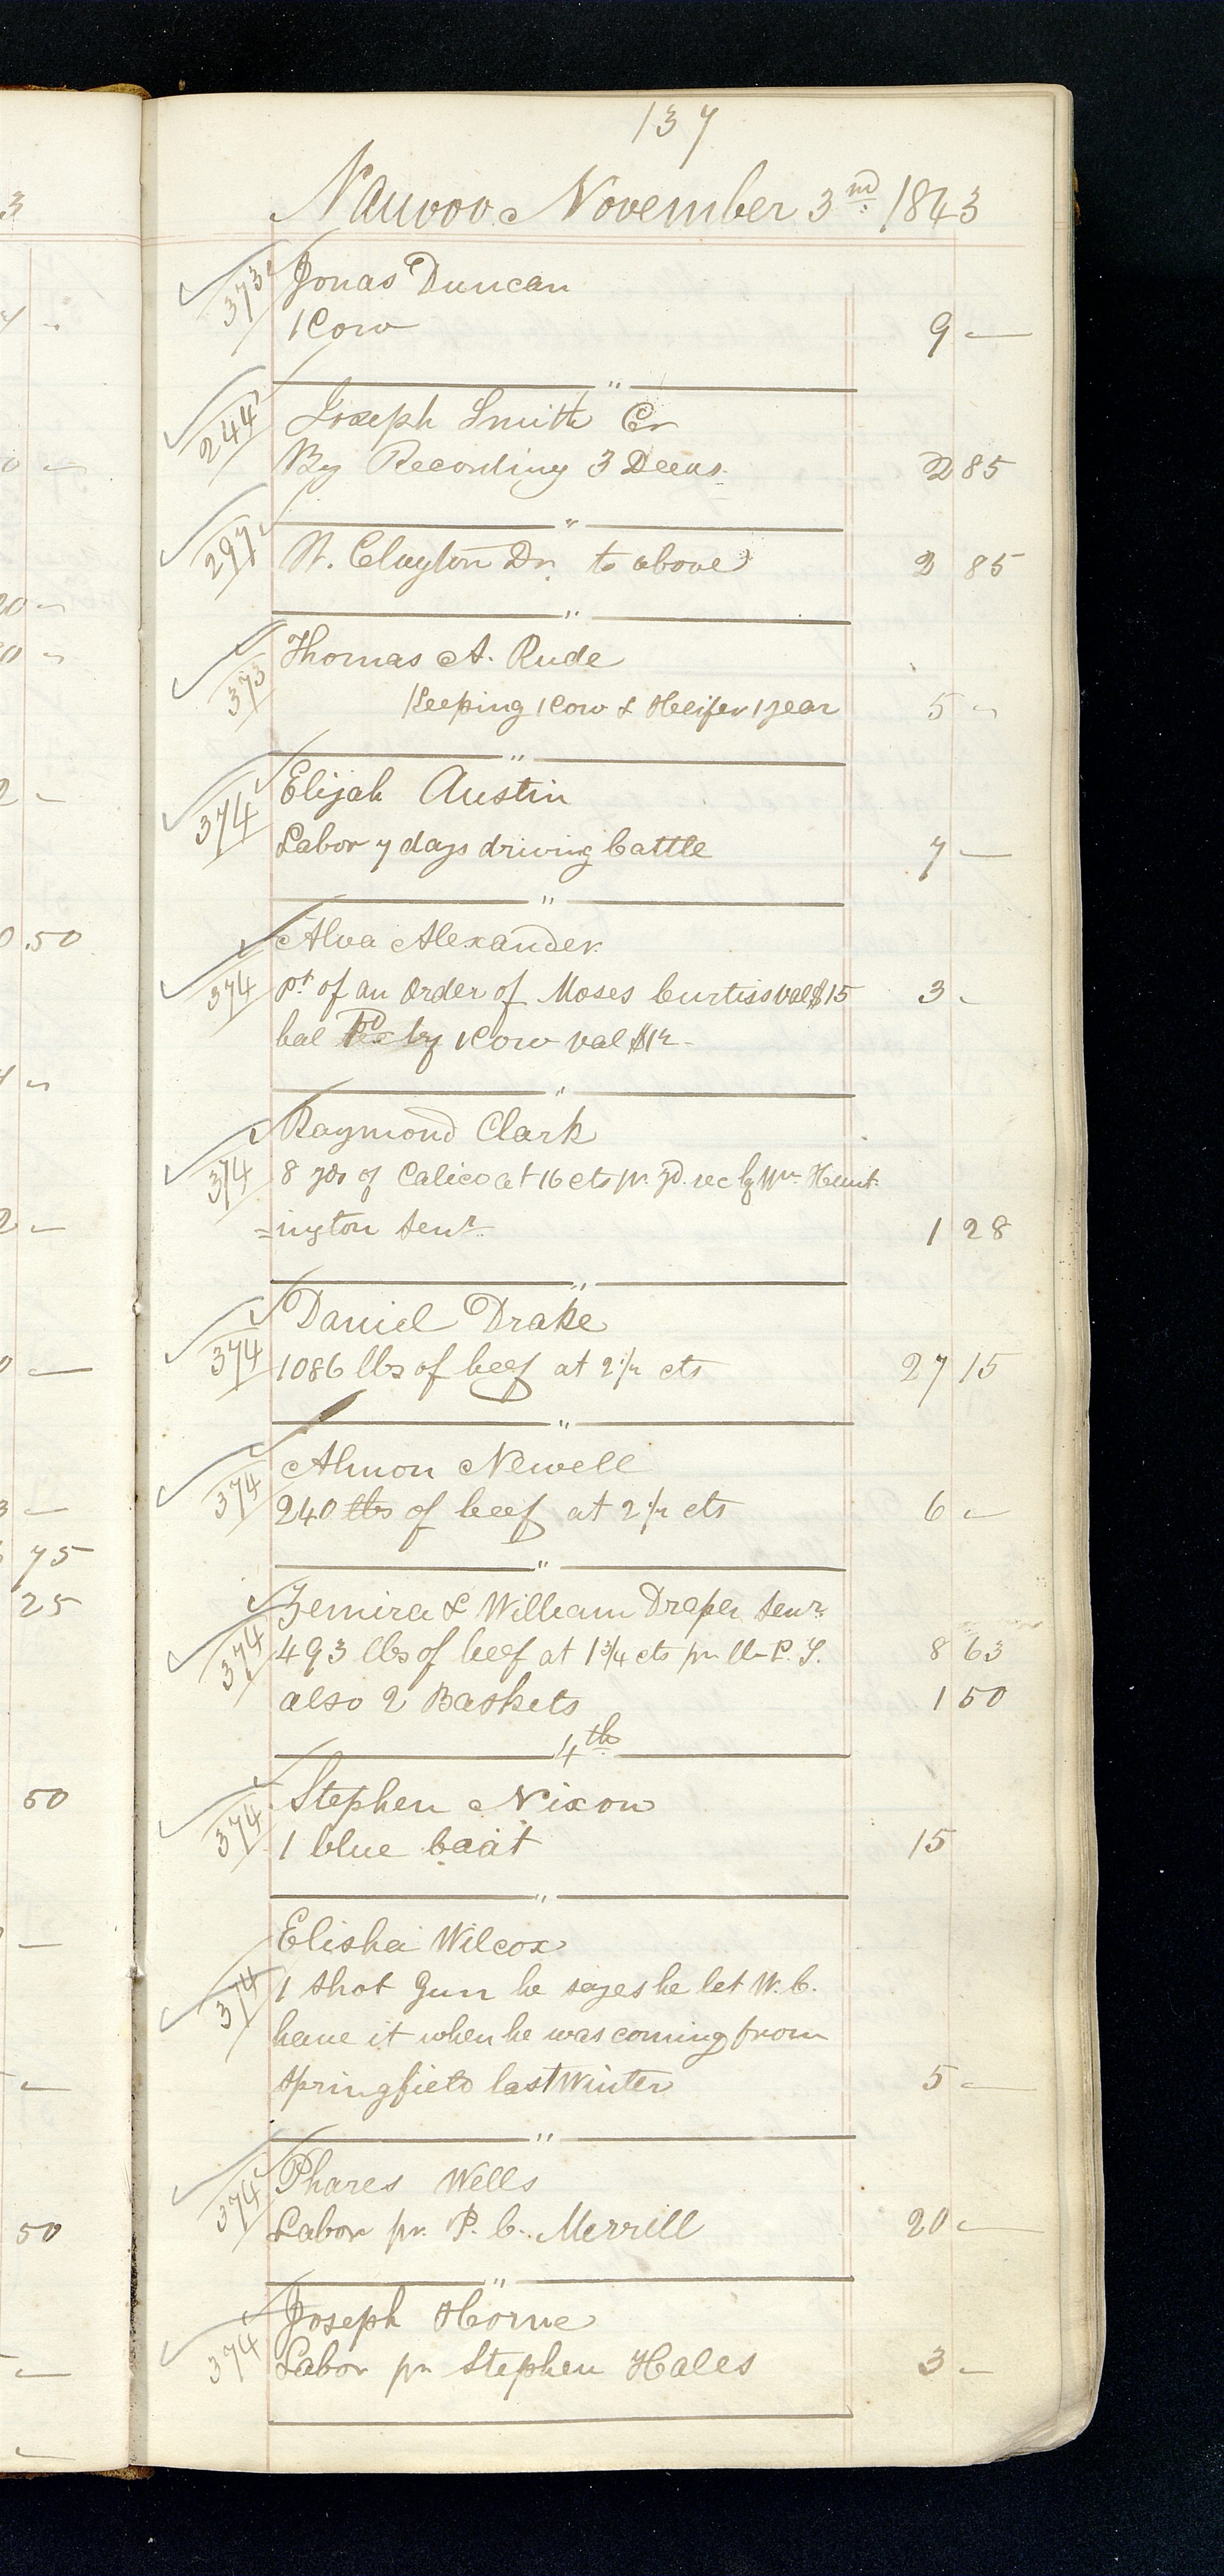 137
Nauvoo November 3rd. 1843
373 Jonas Duncan
1 Cow 9 —
"
244 Joseph Smith Cr
By Recording 3 Deeds 2 85
"
297 W. Clayton Dr. to above 2 85
"
373 Thomas A. Rude
Keeping 1 Cow & Heifer 1 year 5 —
"
374 Elijah Austin
Labor 7 days driving Cattle 7 —
"
Alva Alexander
374 pt of an Order of Moses Curtiss val $15 3 -
bal Pd by 1 Cow val $12 -
"
Raymond Clark
374 8 yds of Calico at 16 cts pr. yd. rec by Wm Hunt-
=ington Senr. 1 28
"
Daniel Drake
374 1086 lbs of beef at 2 1/2 cts 27 15
"
Almon Newell
374 240 lbs of beef at 2 1/2 cts 6 —
"
Zemira & William Draper Senr.
374 493 lbs of beef at 1 3/4 cts pr lb P. S. 8 63
also 2 Baskets 1 50
4th
Stephen Nixon
374 1 blue coat 15
"
Elisha Wilcox
374 1 shot Gun he sayes he let W. C.
have it when he was coming from
Springfield last Winter 5 —
"
374 Phares Wells
Labor pr. P. C. Merrill 20 —
"
Joseph Horne
374 Labor pr Stephen Hales 3 —
3
50
75
25
50
50